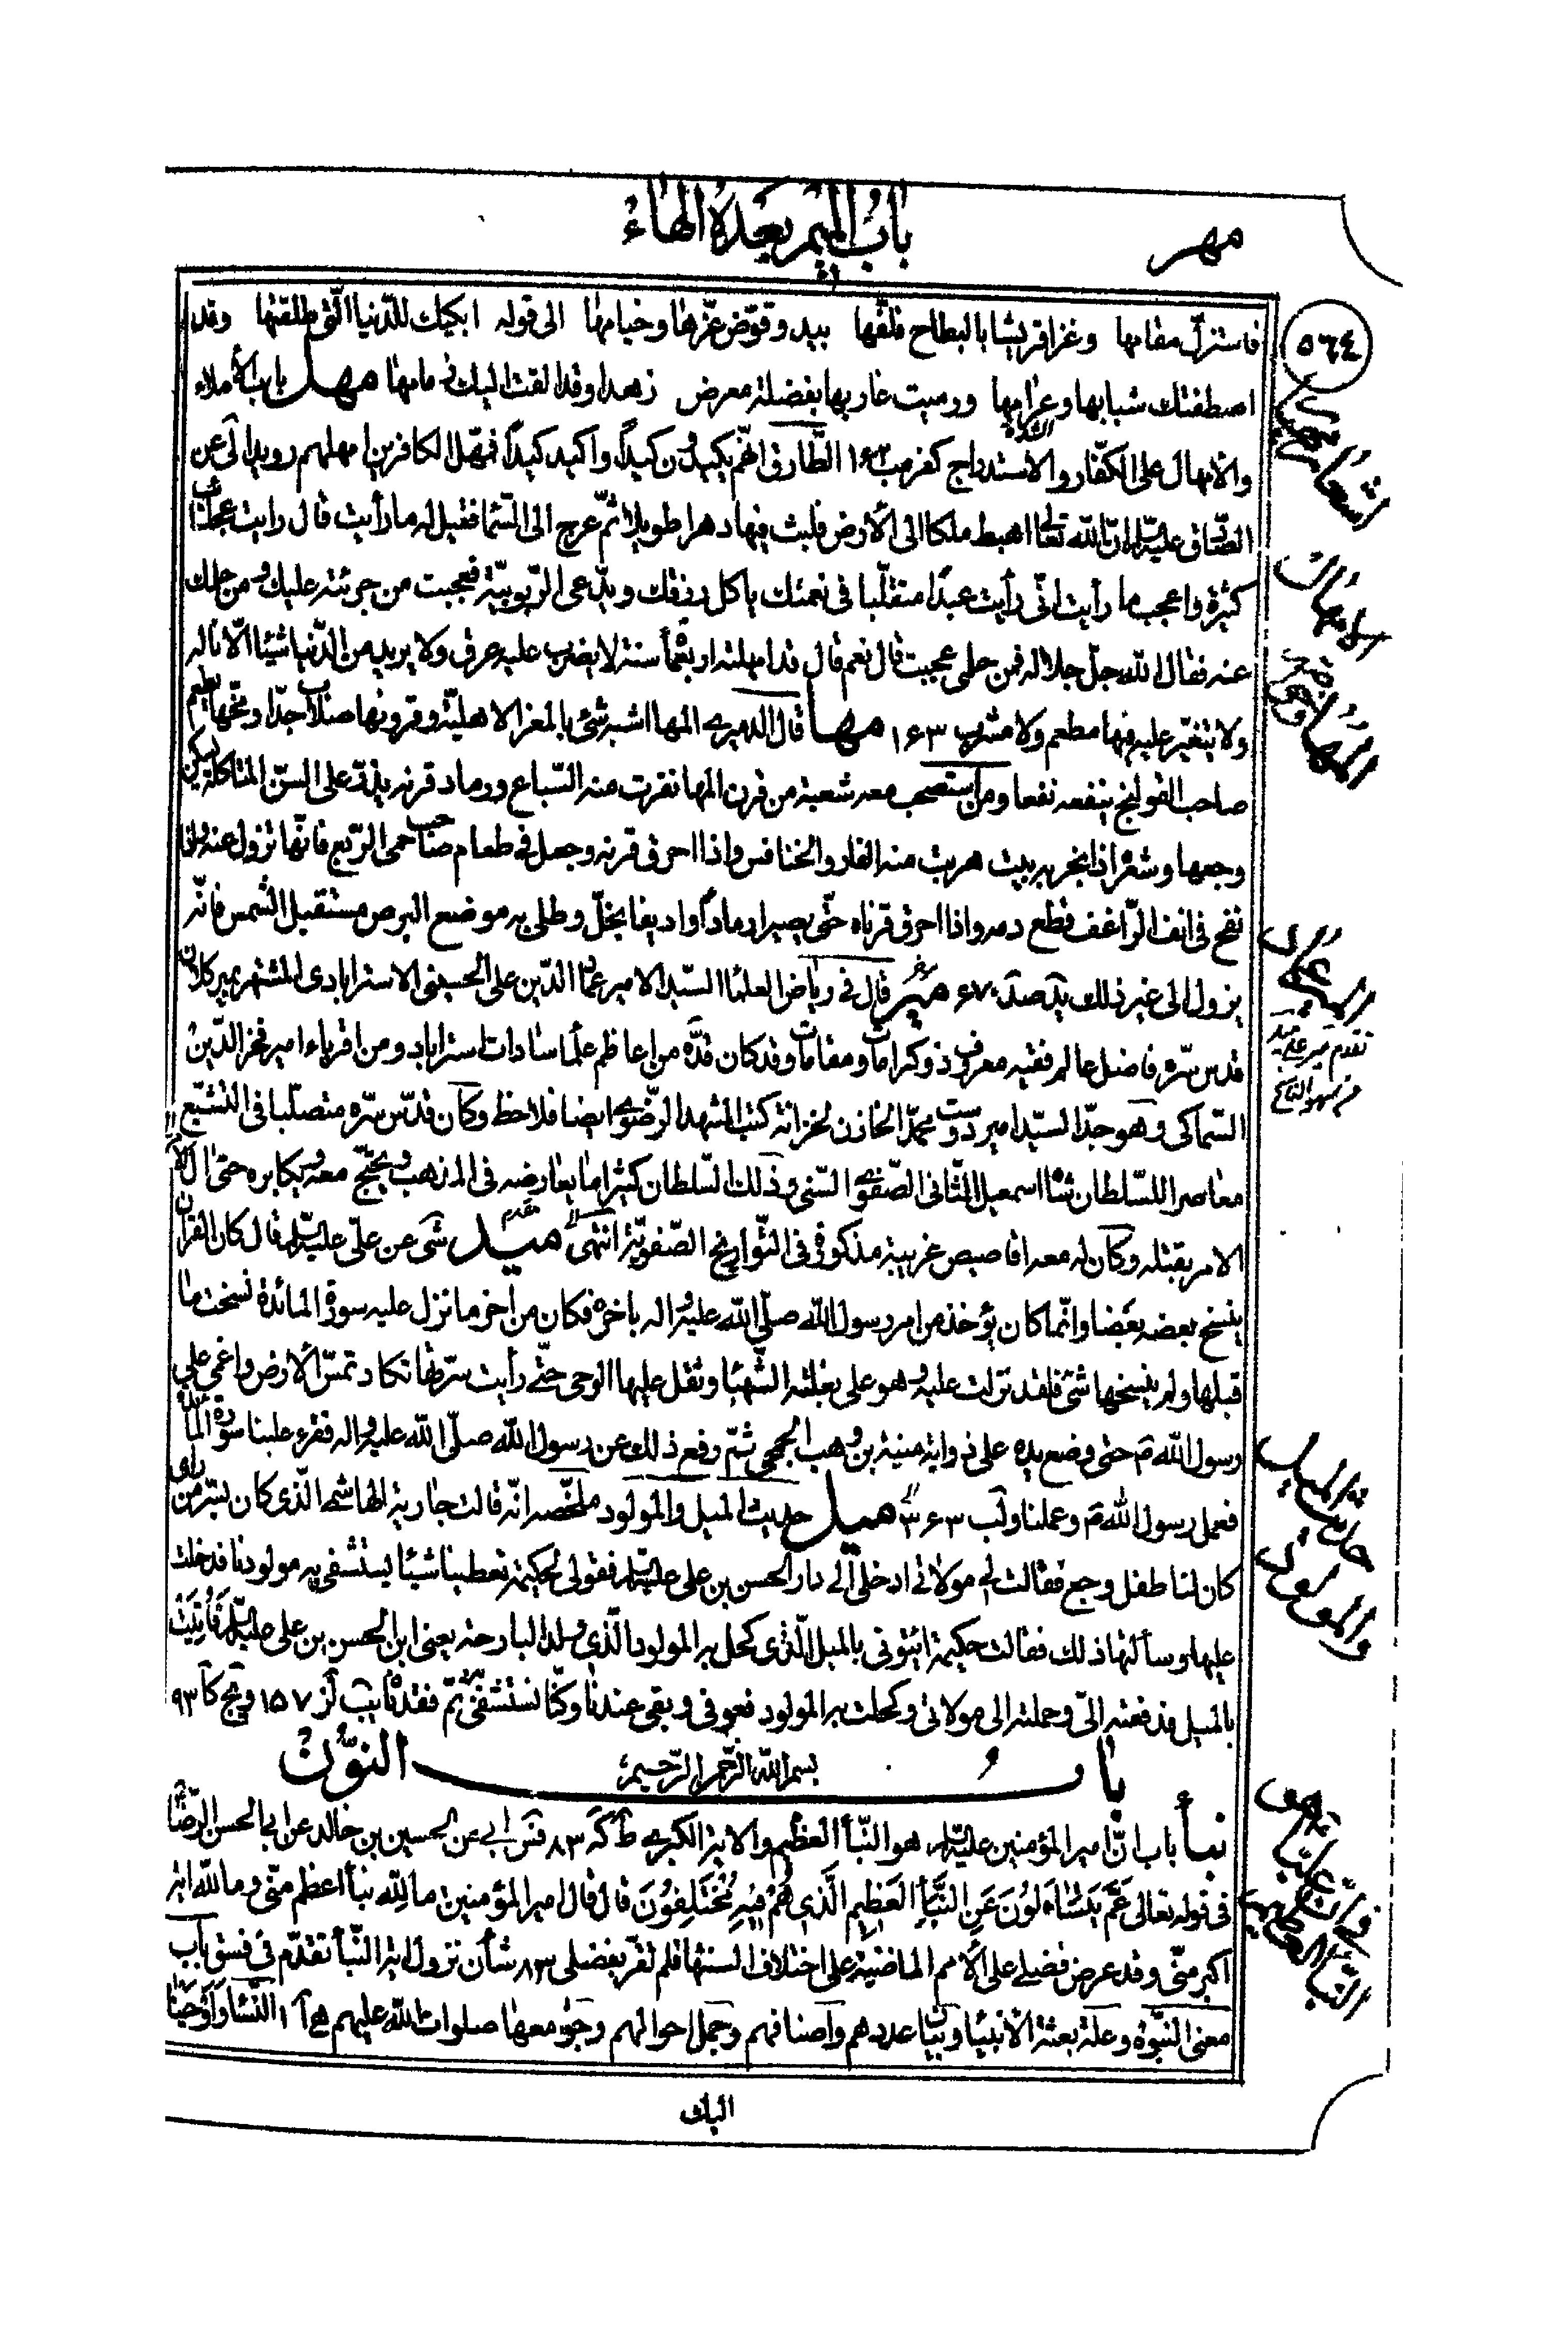 مهر
باب الميم بعده الهاء
٥٦٤
فاستزلّ مقامها وغزا قريشا بالبطاح فلفّها بيد وقوّض عزّها وخيامها الى قوله ابكيك للدّنيا الّتي طلقتها وقد
اصطفتك شبابها وعرامها ورميت غاربها بفضلة معرض زهدا وقد القت اليك زمامها مهل باب الاملاء
والامهال على الكفّار والاستدراج كفر مب ١٦٢ الطّارق انّهم يكيدون كيداً واكيد كيداً فمهّل الكافرين امهلهم رويدا لى عن
الصّادق عليه السّلم انّ الله تعالى اهبط ملكا الى الأرض فلبث فيها دهرا طويلا ثمّ عرج الى السّماء فقيل له ما رأيت قال رايت عجائب
كثيرة واعجب ما رأيت انّي رأيت عبدا متقلّبا في نعمتك ياكل رزقك ويدّعى الرّبوبيّة فعجبت من جرئته عليك ومن حلمك
عنه فقال الله جلّ جلاله فمن حلمى عجبت قال نعم قال قد امهلته اربعمأة سنة لا يضرب عليه عرق ولا يريد من الدّنيا شيئا الّا ناله
ولا يتغيّر عليه فيها مطعم ولا مشرب ١٦٣ مها قال الدميرى المها اشبه شئ بالمعز الاهليّة وقرونها صلاب جدّا ومخّها يطعم
صاحب القولنج ينفعه نفعا ومن استصحب معه شعبة من قرن المها نفرت منه السّباع ورماد قرنه يذرّ على السنّ المتاكلة يسكن
وجعها وشعره اذا بخر به بيت هربت منه الفار والخنافس واذا احرق قرنه وجعل في طعام صاحب حمى الرّبع فانّها تزول عنه واذا
نفح في انف الرّاعف قطع دمه واذا احرق قرناه حتّى يصيرا رمادا واديفا بخلّ وطلى به موضع البرص مستقبل الشّمس فانّه
يزول الى غير ذلك يد صد ٦٧٠ مير قال في رياض العلماء السيّد الامير عماد الدّين على الحسينى الاسترابادى المشتهر بمير كلان
قدس سرّه فاضل عالم فقيه معروف ذو كرامات ومقامات وقد كان قدّه من اعاظم علماء سادات استراباد ومن اقرباء امير فخر الدّين
السّماكى وهو جدّ السيّد امير دوست محمّد الخازن لخزانة كتب المشهد الرضوى ايضا فلاحظ وكان قدّس سرّه متصلّبا في التشيّع
معاصرا للسّلطان شاه اسمعيل الثّانى الصّفوى السّنى وذلك السّلطان كثيرا ما يعارضه في المذهب ويحتجّ معه ويكابره حتى آل
الامر بقتله وكان له معه اقاصيص غريبة مذكورة في التّواريخ الصّفويّة انتهى ميد شى عن علىّ عليه السّلم قال كان القران
ينسخ بعضه بعضا وانّما كان يؤخذ من امر رسول الله صلّى الله عليه واله باخره فكان من اخر ما نزل عليه سورة المائدة نسخت ما
قبلها ولم ينسخها شئ فلقد نزلت عليه وهو على بغلته الشّهباء وثقل عليها الوحى حتّى رأيت سرّتها تكاد تمسّ الأرض واغمى على
رسول الله ص حتى وضع يده على ذوابة منبه بن وهب الجمحى ثمّ رفع ذلك عن رسول الله صلّى الله عليه واله فقرء علينا سورة المائدة
فعمل رسول الله ص وعملنا ميل حديث الميل والمولود ملخّصه انّه قالت جارية الهاشمى الّذى كان بسرّ من راى
كان لنا طفل وجع فقالت لى مولاتى ادخلى الى دار الحسن بن على عليه السّلم فقولى لحكيمة تعطينا شيئا يستشفى به مولودنا فدخلت
عليها وسألتها ذلك فقالت حكيمة ايتونى بالميل الّذى كحل به المولود الّذى ولد البارحة يعنى ابن الحسن بن على عليه السّلم فاتيت
بالميل فدفعته الىّ وحملته الى مولاتى وكحلت به المولود فعوفى وبقى عندنا وكنّا نستشفى به ثمّ فقدناه يب لز ١٥٧ ويج كا ٩٣
باب النّون
بسم الله الرّحمن الرّحيم
نبأ باب انّ امير المؤمنين عليه السّلم هو النّبأ العظيم والاية الكبرى ط كه ٨٣ فس ابى عن الحسين بن خالد عن ابى الحسن الرّضا
فى قوله تعالى عَمَّ يَتَسَاءَلُونَ عَنِ النَّبَإِ العَظِيمِ الَّذِى هُمْ فِيهِ مُخْتَلِفُونَ قال قال امير المؤمنين ما لله نبأ اعظم منّى وما لله اية
اكبر منّى وقد عرض فضلى على الأمم الماضية على اختلاف السنتها فلم تقرّ بفضلى ٨٣ شأن نزول اية النّبأ تقدّم في فسق باب
معنى النبّوة وعلة بعثة الانبياء وبيان عددهم واصنافهم وجمل احوالهم وجوامعها صلوات الله عليهم هـ آ ١ النّساء وأوحينا
اليك